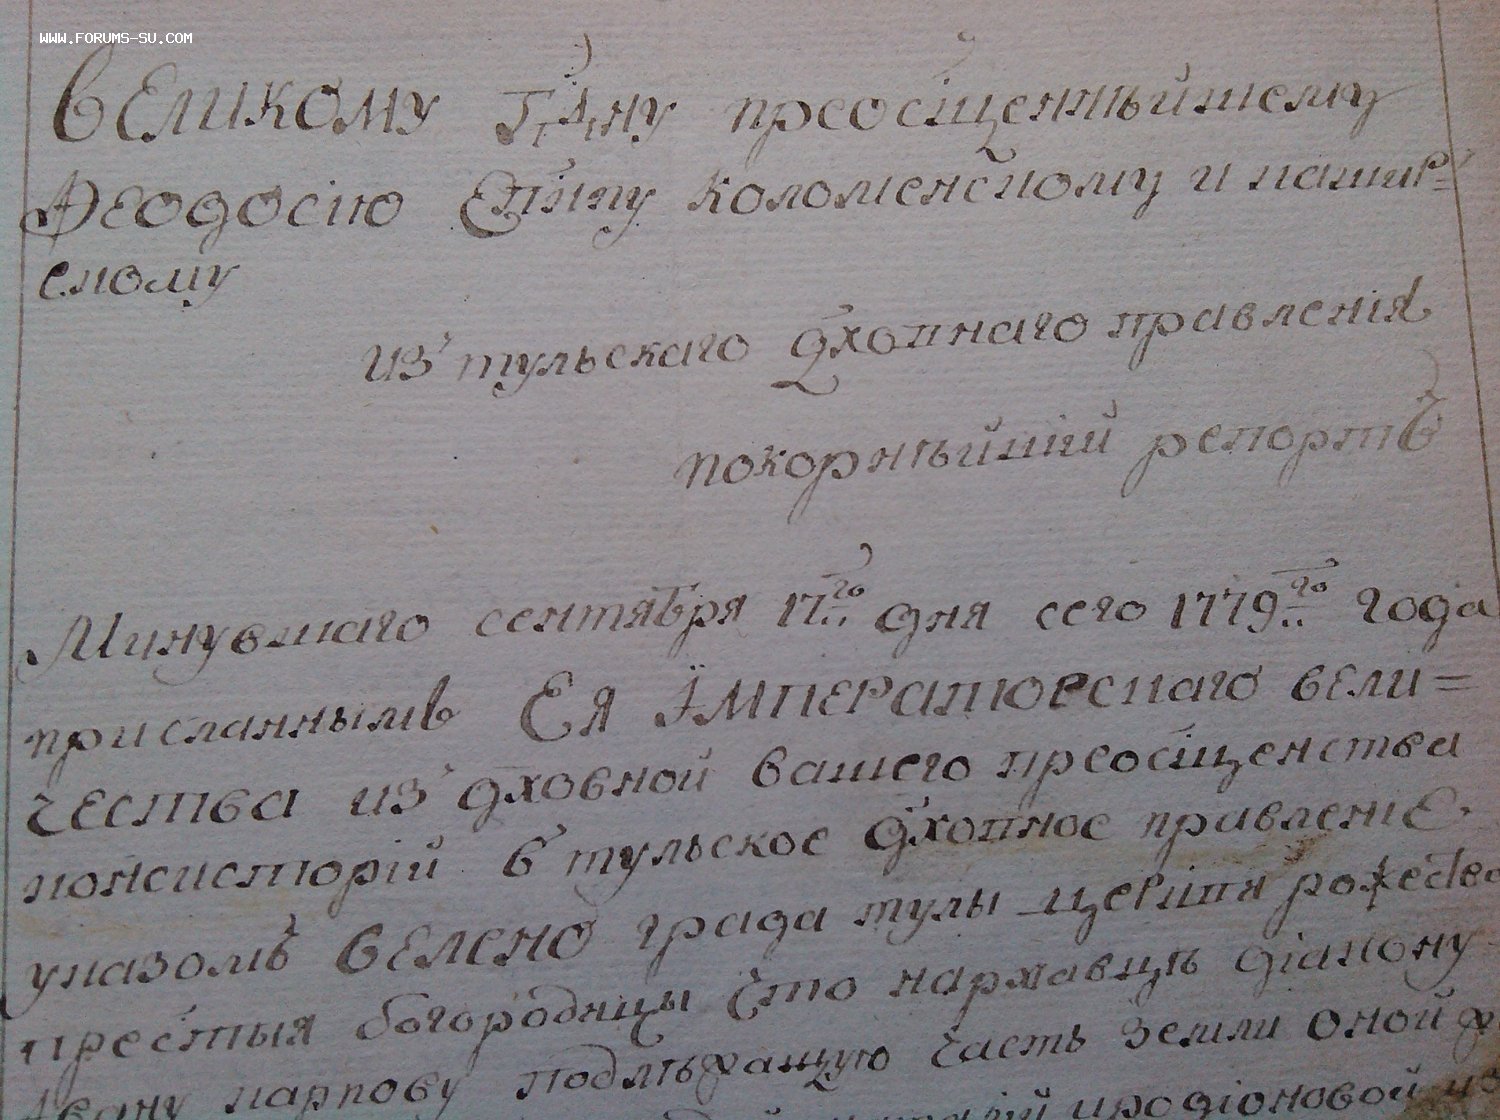 www.forums-su.com
Великому Гдну преосщеннѣйшему
Феодосию Еппу коломенскому и кашир=
скому
из тульскаго дховнаго правленія
покорнѣйшій репортъ
Минувшаго сентября 17го дня сего 1779го года
присланнымъ Ея Императорскаго вели=
чества из дховной вашего преосщенства
консисторіи в тульское дховное правленіе
указомъ велено града тулы церкви рожества
престыя богородицы что на ржавцѣ діакону
Ивану карпову подлѣжащую часть земли оной
иродіоновой из